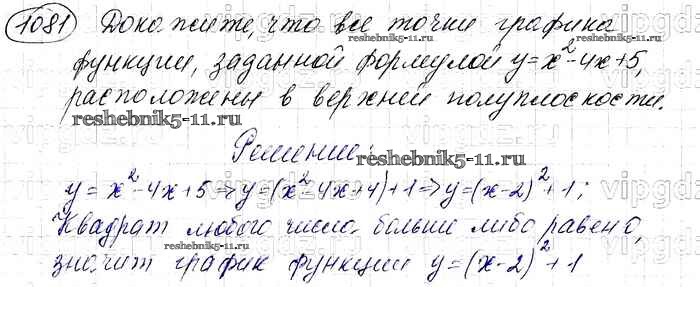 1081 Докажите, что все точки графика
функции, заданной формулой y=x²-4x+5,
расположены в верхней полуплоскости.
reshebnik5-11.ru
Решение:
reshebnik5-11.ru
y=x²-4x+5⇒y=(x²-4x+4)+1⇒y=(x-2)²+1;
Квадрат любого числа больше либо равен 0,
reshebnik5-11.ru
значит график функции y=(x-2)²+1